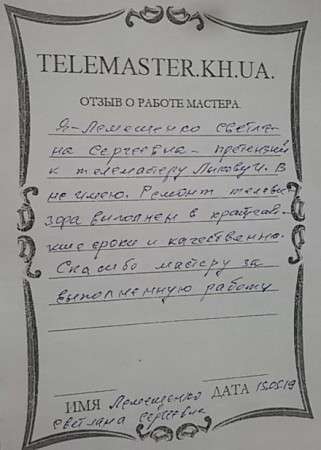 TELEMASTER.KH.UA.
ОТЗЫВ О РАБОТЕ МАСТЕРА.
Я - Лемещенко Светла-
на Сергеевна - претензий
к телемастеру В.
не имею. Ремонт телеви-
зора выполнен в кратчай-
шие сроки и качественно.
Спасибо мастеру за
выполненную работу
ИМЯ Лемещенко ДАТА 15.05.19
Светлана Сергеевна